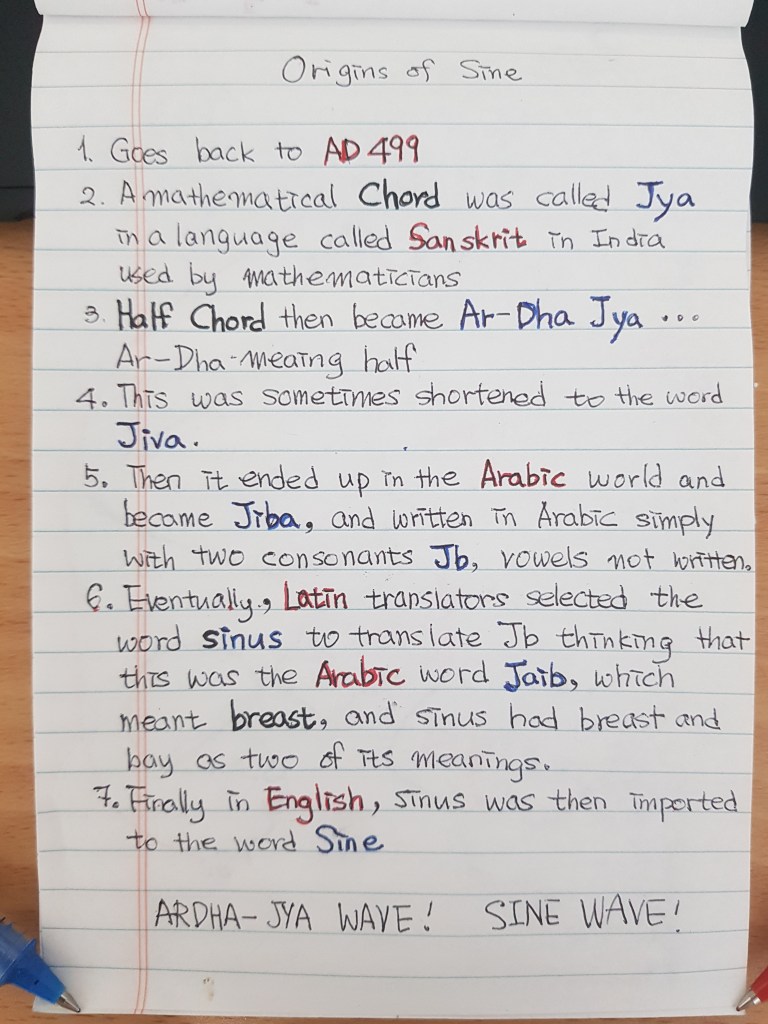 Origins of Sine
1. Goes back to AD 499
2. A mathematical Chord was called Jya
in a language called Sanskrit in India
used by mathematicians
3. Half Chord then became Ar-Dha Jya ...
Ar-Dha-meaing half
4. This was sometimes shortened to the word
Jiva.
5. Then it ended up in the Arabic world and
became Jiba, and written in Arabic simply
with two consonants Jb, vowels not written.
6. Eventually, Latin translators selected the
word sinus to translate Jb thinking that
this was the Arabic word Jaib, which
meant breast, and sinus had breast and
bay as two of its meanings.
7. Finally in English, sinus was then imported
to the word Sine
ARDHA-JYA WAVE! SINE WAVE!